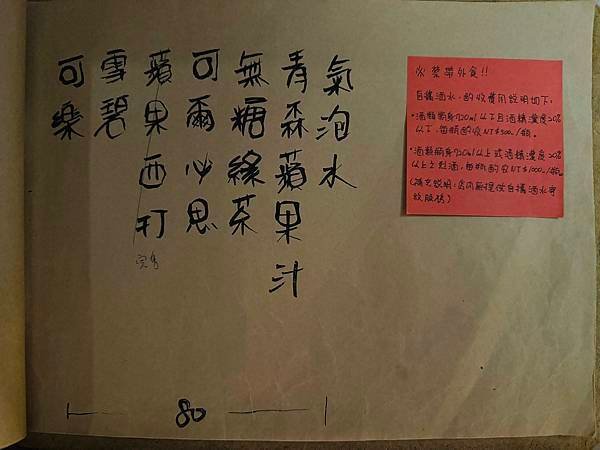 氣泡水
青森蘋果汁
無糖綠茶
可爾必思
蘋果西打
完售
雪碧
可樂
80
※禁帶外食!!
自攜酒水,酌收費用說明如下:
・酒類瓶身720ml以下且酒精濃度20%
以下,每瓶酌收NT$500./瓶。
・酒類瓶身720ml以上或酒精濃度20%
以上之烈酒,每瓶酌收NT$1000./瓶。
(補充說明:店內無提供自攜酒水寄
放服務)